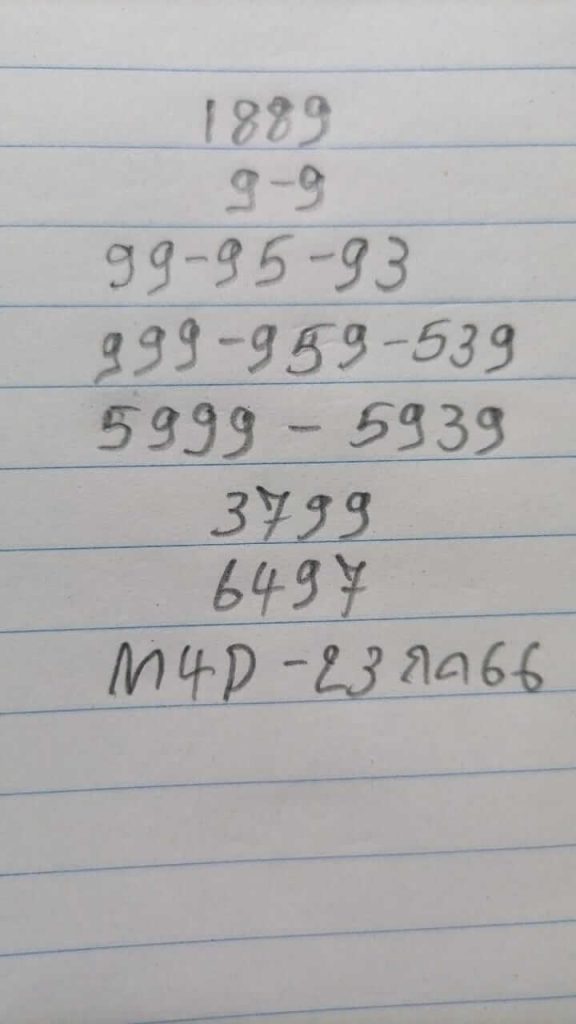 1889
9-9
99-95-93
999-959-539
5999 - 5939
3799
6497
M4D -23 กค66